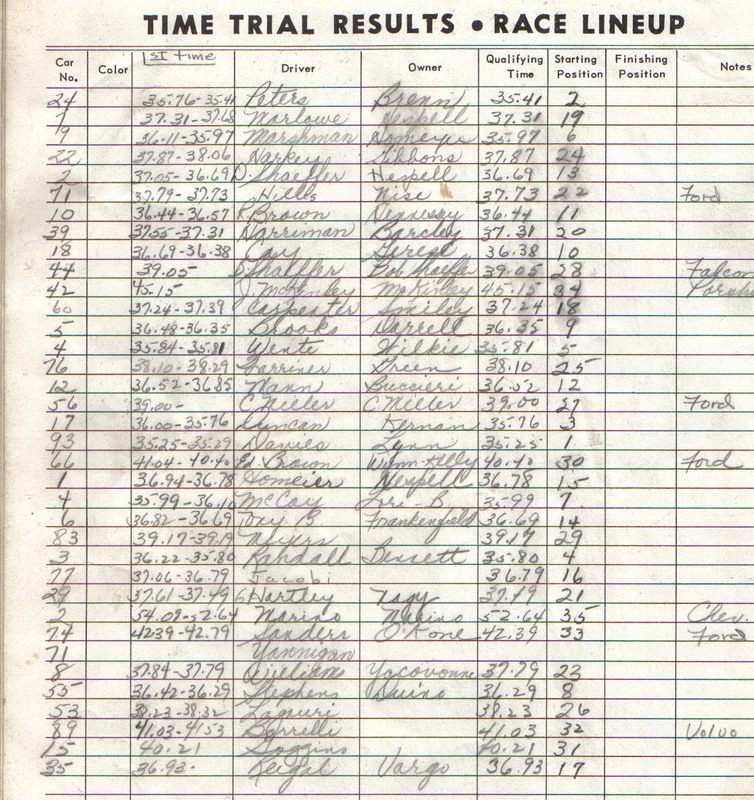 TIME TRIAL RESULTS • RACE LINEUP
Car No. Color 1st time Driver Owner Qualifying Time Starting Position Finishing Position Notes
24 35.76-35.41 Peters Brenn 35.41 2
1 37.31-37.68 Marlowe Hespell 37.31 19
9 36.11-35.97 Marshman Homeier 35.97 6
22 37.87-38.06 Gibbons 37.87 24
2 37.05-36.69 D. Shaeffer Hespell 36.69 13
71 37.79-37.73 Hills Nise 37.73 22 Ford
10 36.44-36.57 R. Brown Dennessy 36.44 11
39 37.55-37.31 Harriman Barcley 37.31 20
18 36.69-36.38 36.38 10
44 39.05- Shaeffer Bob Shaeffer 39.05 28 Falcon
42 45.15 J McKinley McKinley 45.15 34
60 37.24-37.39 Carpenter Smiley 37.24 18
5 36.48-36.35 Brooks 36.35 9
4 35.84-35.81 Wente Wilkie 35.81 5
76 38.10-38.29 Green 38.10 25
12 36.52-36.85 Mann Buccieri 36.52 12
56 39.00- C. Miller C. Miller 39.00 27 Ford
17 36.00-35.76 Duncan Kernan 35.76 3
93 35.25-35.29 Davies Lynn 35.25 1
66 41.04-40.40 Ed Brown 40.40 30 Ford
1 36.94-36.78 Homeier Hespell 36.78 15
4 35.99-36.10 McCoy 35.99 7
6 36.82-36.69 Tony B Frankenfield 36.69 14
83 39.17-39.19 39.17 29
3 36.22-35.80 Randall 35.80 4
77 37.06-36.79 Jacobi 36.79 16
29 37.61-37.49 G Hartley Nagy 37.49 21
2 54.09-52.64 Marino Marino 52.64 35 Chev.
74 4239-42.79 Sanders O'Kone 42.39 33 Ford
71 Yannigan
8 37.84-37.79 Williams Yacovonne 37.79 23
55 36.42-36.29 Stephens Duino 36.29 8
53 38.23-38.32 Laguri 38.23 26
89 41.03-41.53 Borrelli 41.03 32 Volvo
15 40.21 Goggins 40.21 31
35 36.93- Reigel Vargo 36.93 17